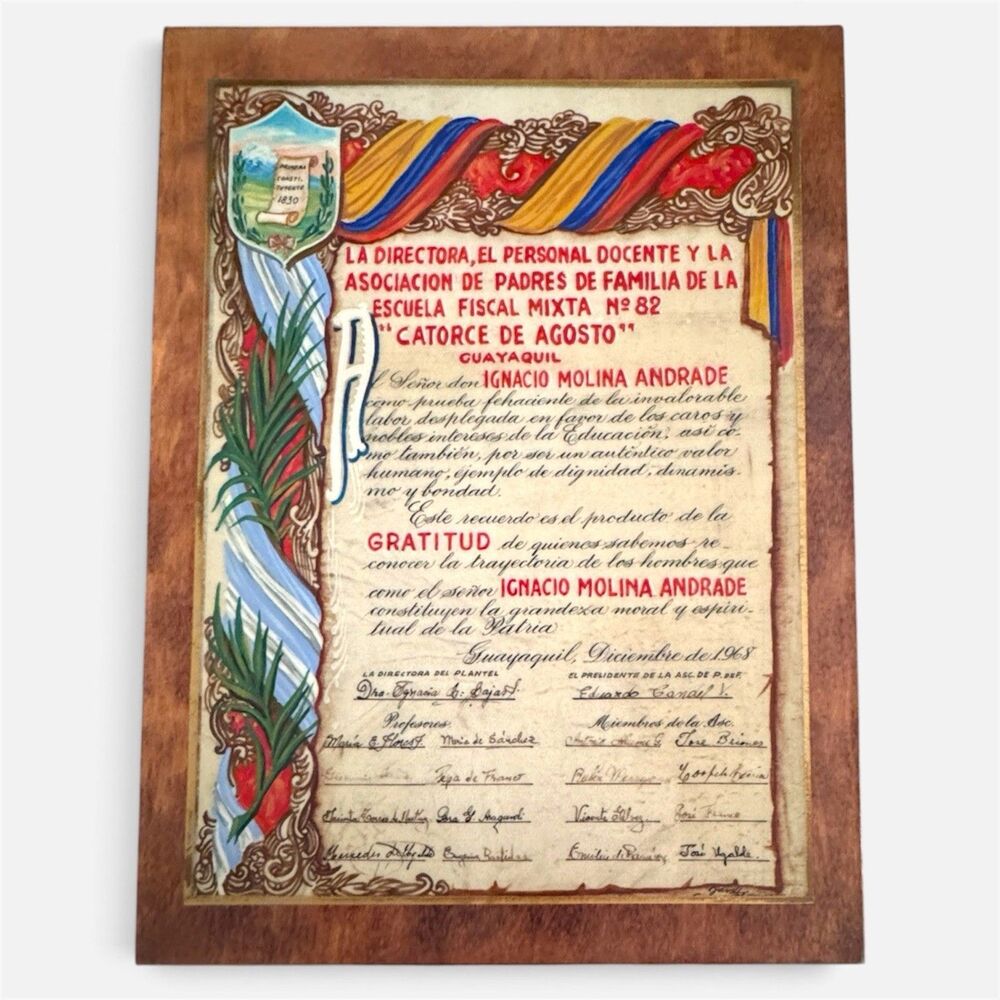 PRIMERA
CONSTI-
TUYENTE
1830
LA DIRECTORA, EL PERSONAL DOCENTE Y LA
ASOCIACION DE PADRES DE FAMILIA DE LA
ESCUELA FISCAL MIXTA Nº 82
"CATORCE DE AGOSTO"
GUAYAQUIL
Al Señor don IGNACIO MOLINA ANDRADE
como prueba fehaciente de la invalorable
labor desplegada en favor de los caros y
nobles intereses de la Educación, así co-
mo también, por ser un auténtico valor
humano, ejemplo de dignidad, dinamis-
mo y bondad.
Este recuerdo es el producto de la
GRATITUD de quienes sabemos re-
conocer la trayectoria de los hombres que
como el señor IGNACIO MOLINA ANDRADE
constituyen la grandeza moral y espiri-
tual de la Patria
Guayaquil, Diciembre de 1968
LA DIRECTORA DEL PLANTEL EL PRESIDENTE DE LA ASC. DE P. DE F.
Dra. Ignacia Eduardo
Profesores Miembros de la Asc.
María E. Flores F. María de Sánchez José Briones
Pepa de Franco Rubén
de Sara Y. Vicente José Franco
Mercedes Eugenia Emilio José Ugalde.